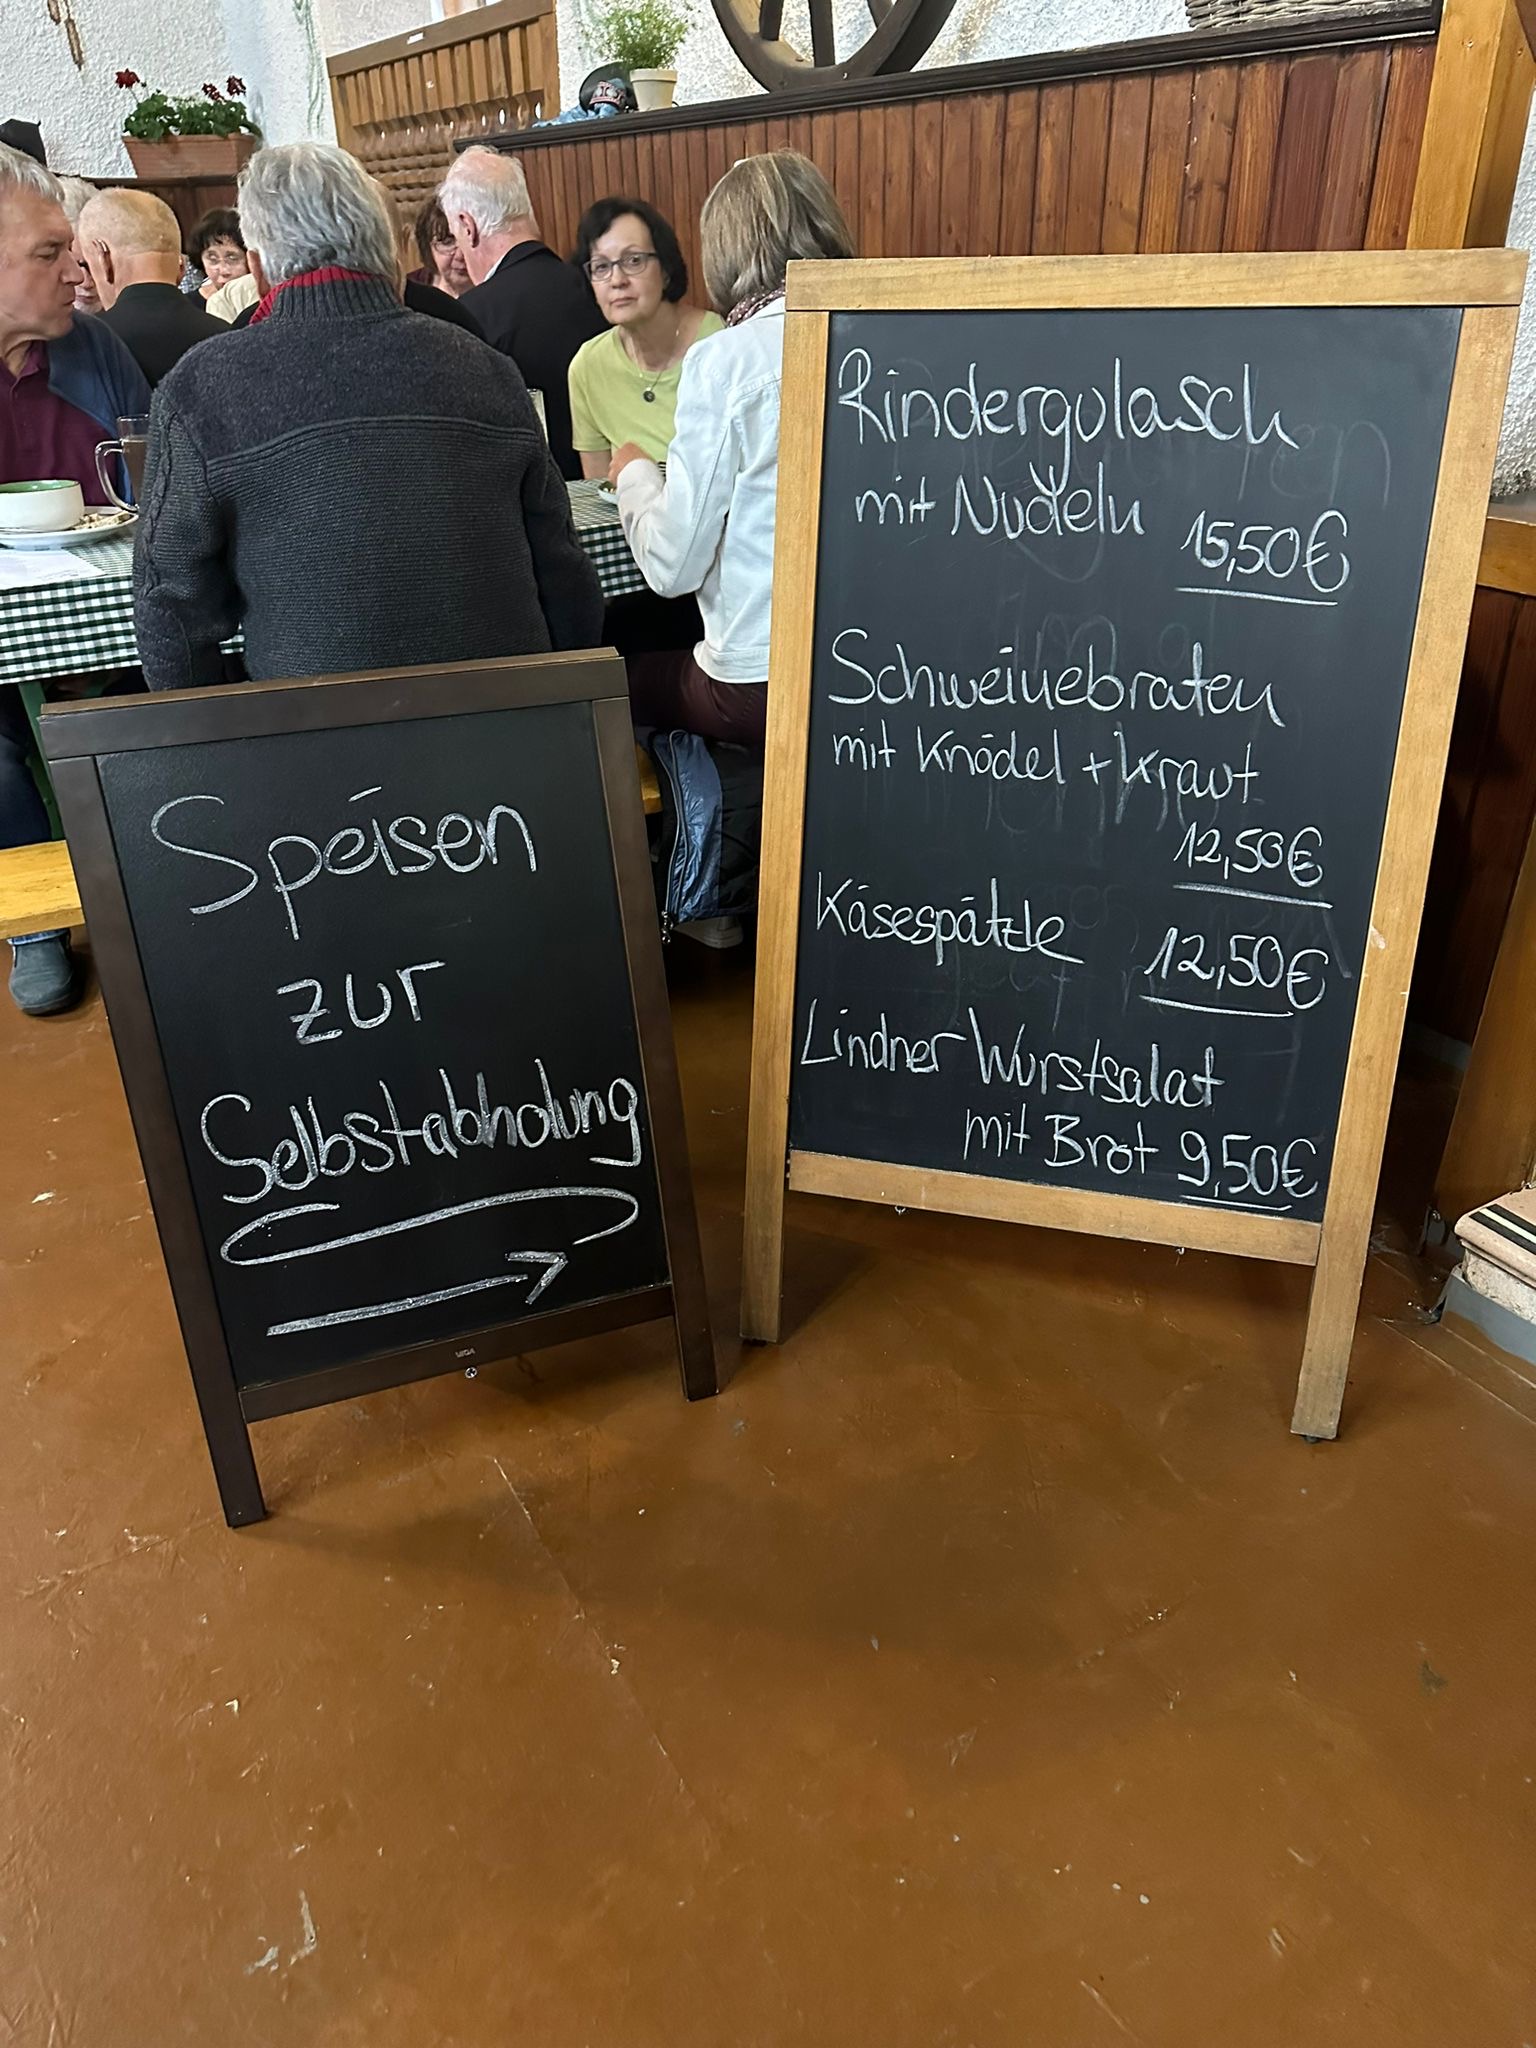 Speisen
zur
Selbstabholung
Rindergulasch
mit Nudeln 15,50€
Schweinebraten
mit Knödel + Kraut
12,50€
Käsespätzle 12,50€
Lindner Wurstsalat
mit Brot 9,50€